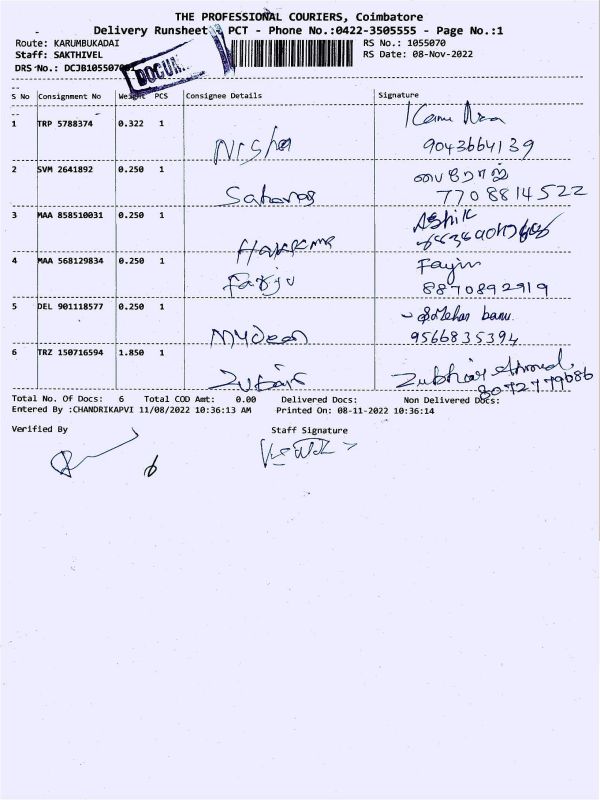 THE PROFESSIONAL COURIERS, Coimbatore
Delivery Runsheet PCT - Phone No.:0422-3505555 - Page No.:1
Route: KARUMBUKADAI RS No.: 1055070
Staff: SAKTHIVEL RS Date: 08-Nov-2022
DRS No.: DCJB105507
DOCUM
S No Consignment No Weight PCS Consignee Details Signature
1 TRP 5788374 0.322 1
Nisha 9043664139
2 SVM 2641892 0.250 1
7708814522
3 MAA 858510031 0.250 1 Ashik
4 MAA 568129834 0.250 1
8870892919
5 DEL 901118577 0.250 1
Mydeen 9566835394
6 TRZ 150716594 1.850 1
Zubair Zubhair Ahmed
8072779686
Total No. Of Docs: 6 Total COD Amt: 0.00 Delivered Docs: Non Delivered Docs:
Entered By :CHANDRIKAPVI 11/08/2022 10:36:13 AM Printed On: 08-11-2022 10:36:14
Verified By Staff Signature